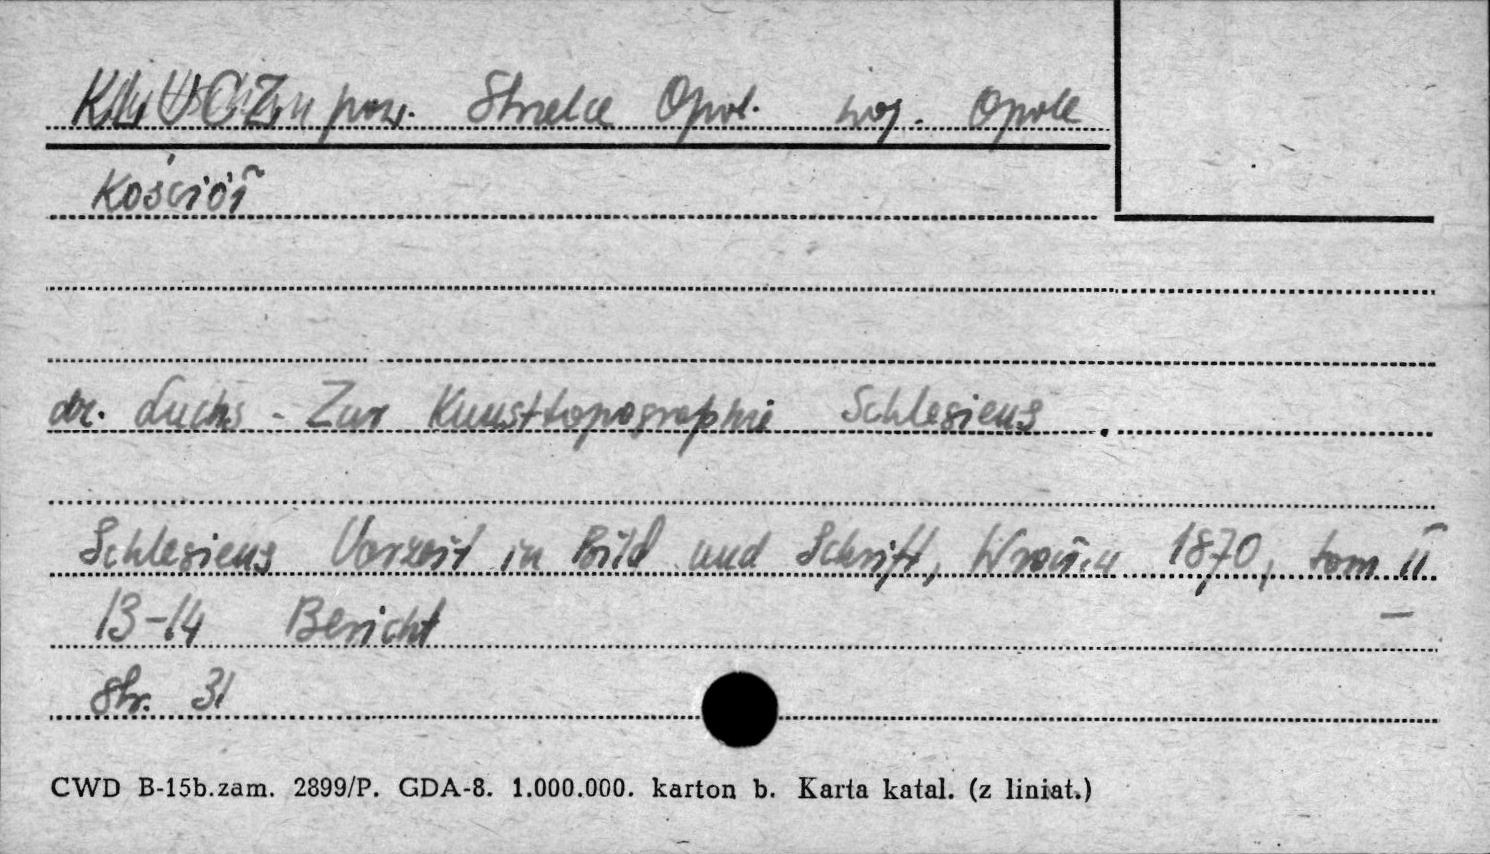 KLUCZ pow. Strzelce Opol. woj. Opole
Kościół
dr. Luchs - Zur Kunsttopographie Schlesiens.
Schlesiens Vorzeit in Bild und Schrift, 1870, tom II
13-14 Bericht
Str. 31
CWD B-15b.zam. 2899/P. GDA-8. 1.000.000. karton b. Karta katal. (z liniat.)